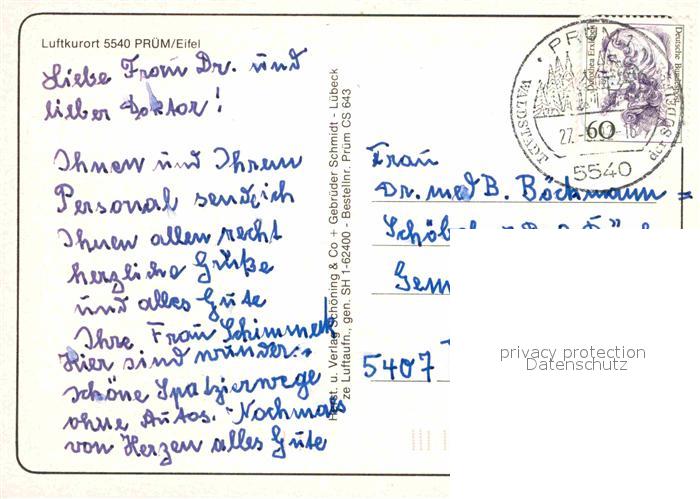 Luftkurort 5540 PRÜM/Eifel
Liebe Frau Dr. und
lieber Doktor!
Ihnen und Ihrem
Personal send ich
Ihnen allen recht
herzliche Grüße
und alles Gute
Ihre Frau Schimmeck
Hier sind wunder-
schöne Spatzierwege
ohne Autos. Nochmals
von Herzen alles Gute
Herst. u. Verlag Schöning & Co + Gebrüder Schmidt - Lübeck
ze Luftaufn., gen. SH 1-62400 - Bestellnr. Prüm CS 643
PRÜM
WALDSTADT
5540
60
Deutsche Bundespost
Frau
Dr. med B. Böckmann =
5407
privacy protection
Datenschutz